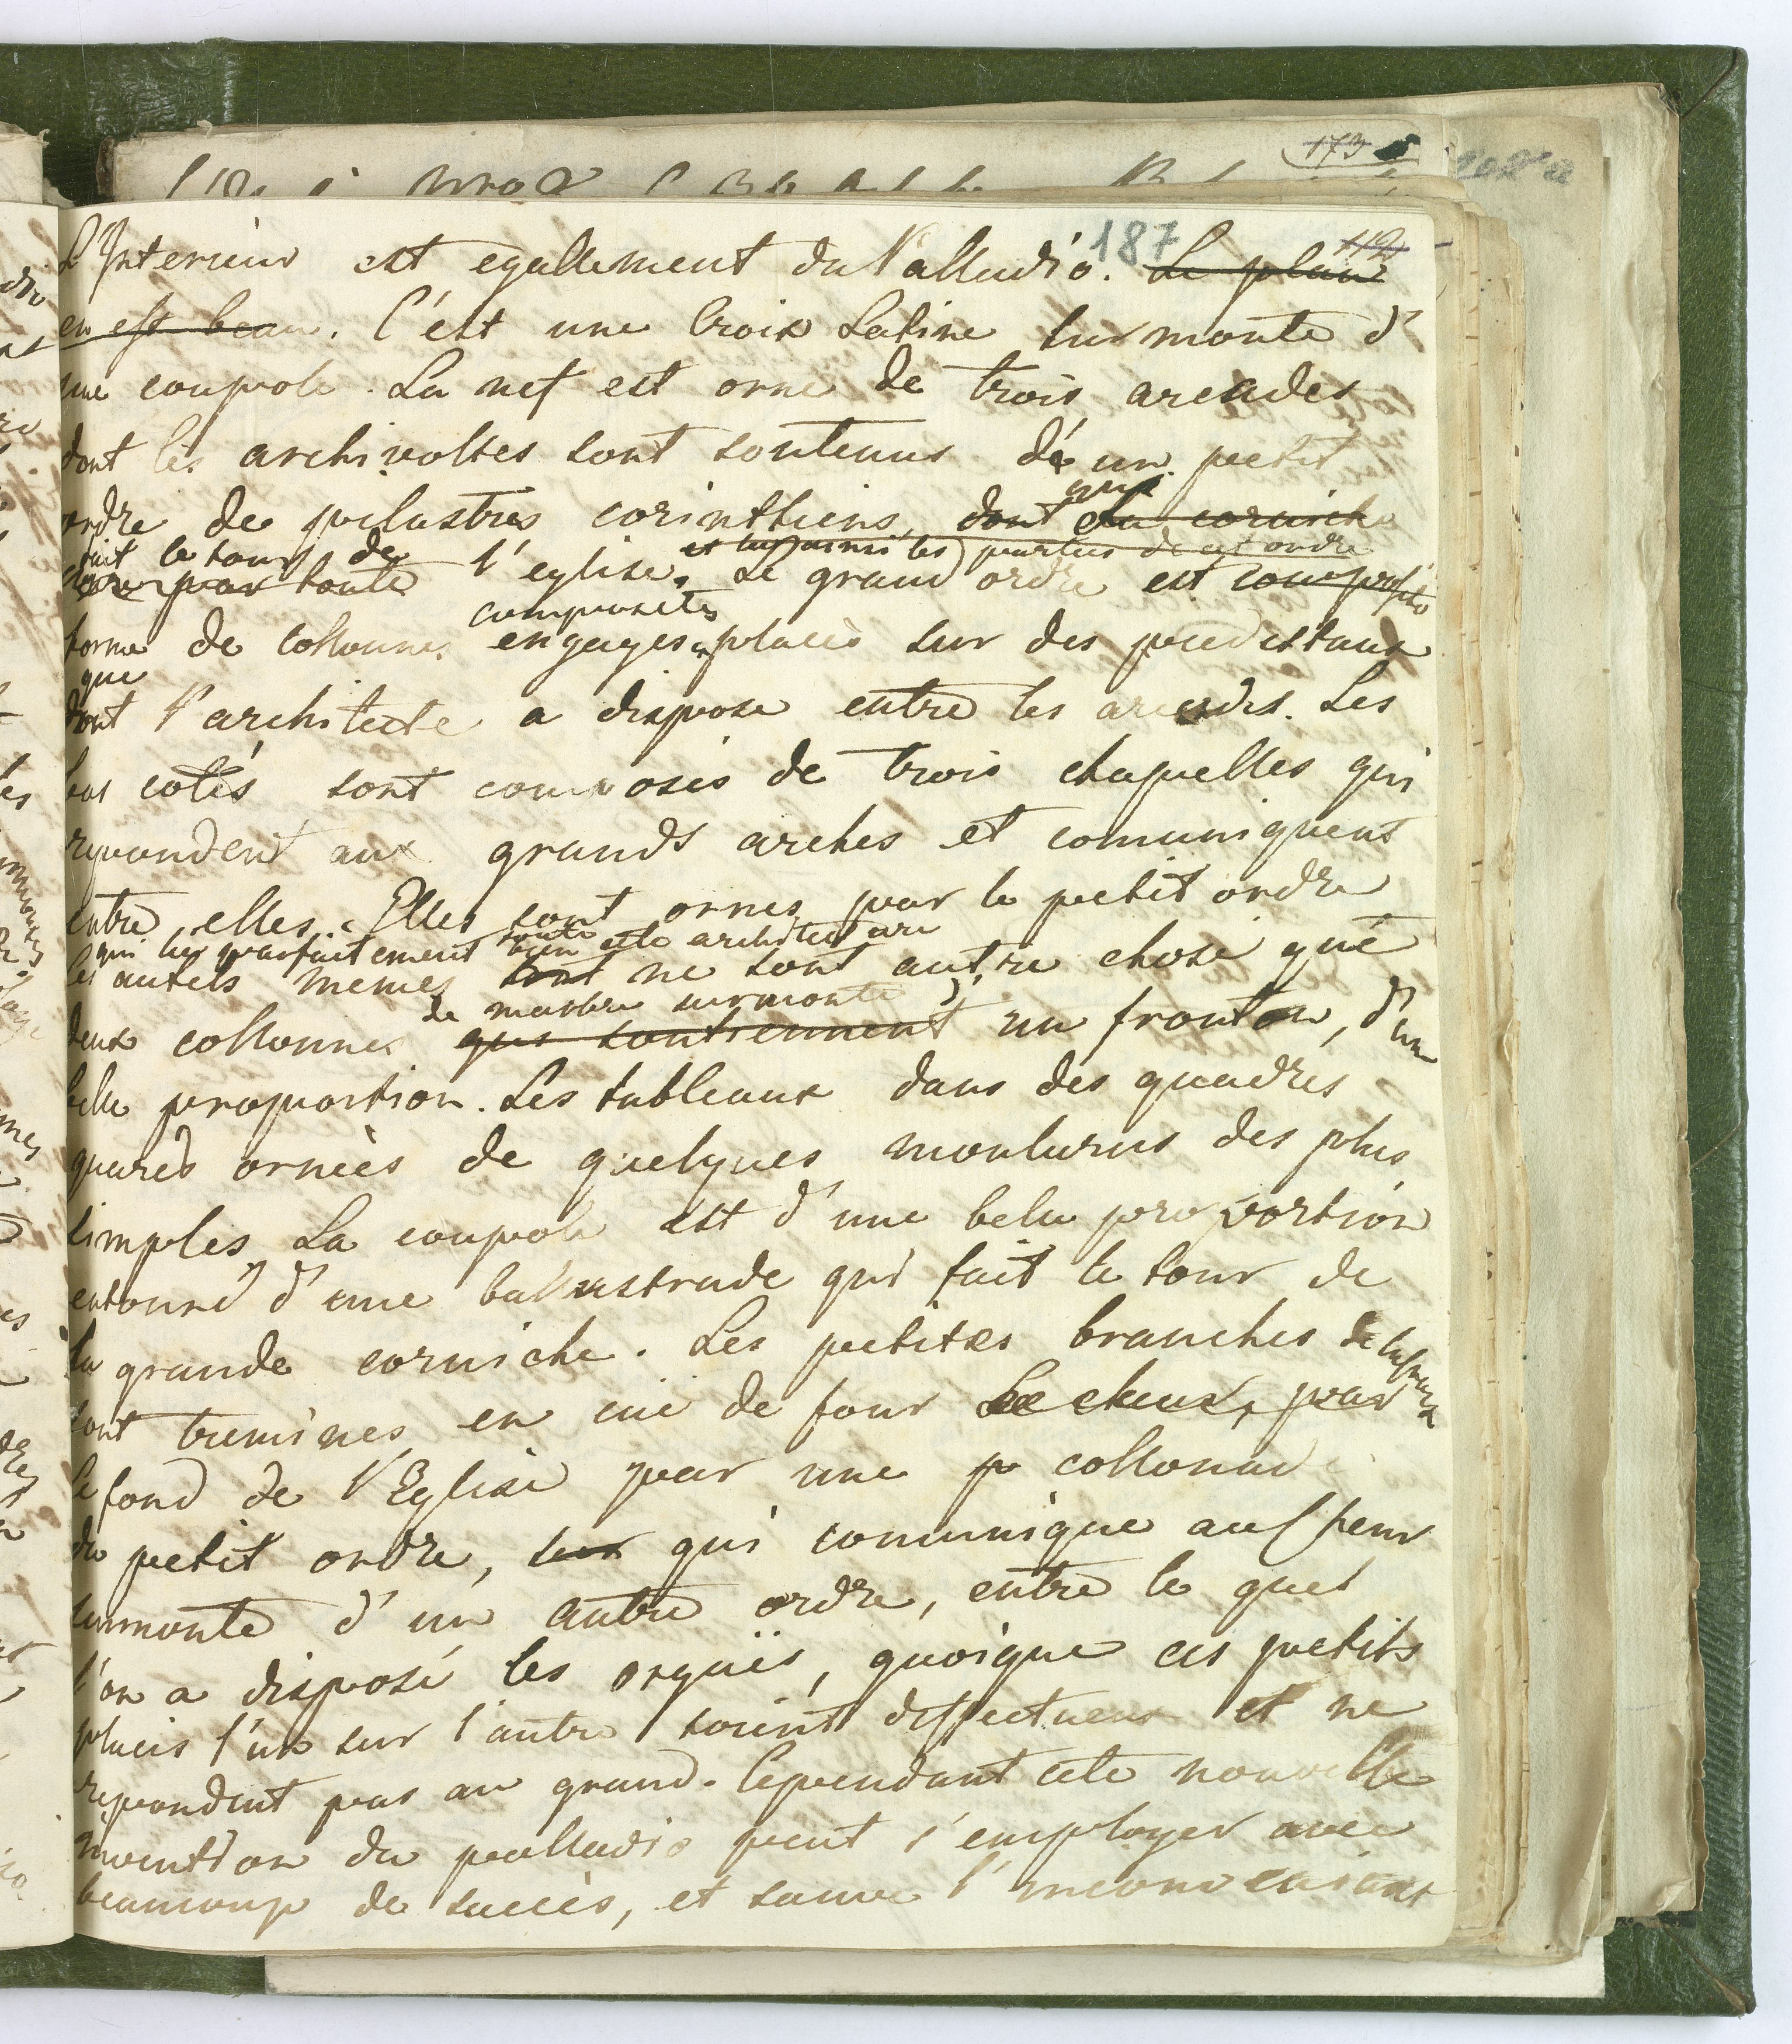 173
187
119
L'Interieur est egallement du Palladio. Le plan
en est beau. C'est une Croix Latine surmonte d'
une coupole. La nef est orné de trois arcades
dont les archivoltes sont soutenus de un petit
ordre de pilastres corinthiens, dont la corniche
qui
fait le tour de
par toute l'eglise. Le grand ordre est compose
les parties de cet ordre
composites
forme de collonnes engages placés sur des piedestaux
que
dont l'architecte a dispose entre les arcades. Les
bas cotés sont composés de trois chapelles qui
repondent aux grands arches et comuniquent
entre elles. Elles sont ornes par le petit ordre
qui parfaitement bien toute architecture
les autels memes sont ne sont autre chose que
de marbre surmonté d'
deux collonnes qui soutiennent un fronton, d'une
belle proportion. Les tableaux dans des quadres
quarés ornées de quelques moulures des plus
simples. La coupole est d'une belle proportion
entouré d'une ballustrade qui fait le tour de
la grande corniche. Les petites branches de la
sont treminés en cué de four Le cheur, par
le fond de l'Eglise par une p collonade
du petit ordre, sur qui comunique au
surmonté d'un autre ordre, entre le quel
l'on a disposé les orgües, quoique ces petits
placés l'un sur l'autre soient deffectueux et ne
repondent pas au grand. Cependant cete nouvelle
invention du palladio peut s'employer avec
beaucoup de succès, et sauve l'inconvenient